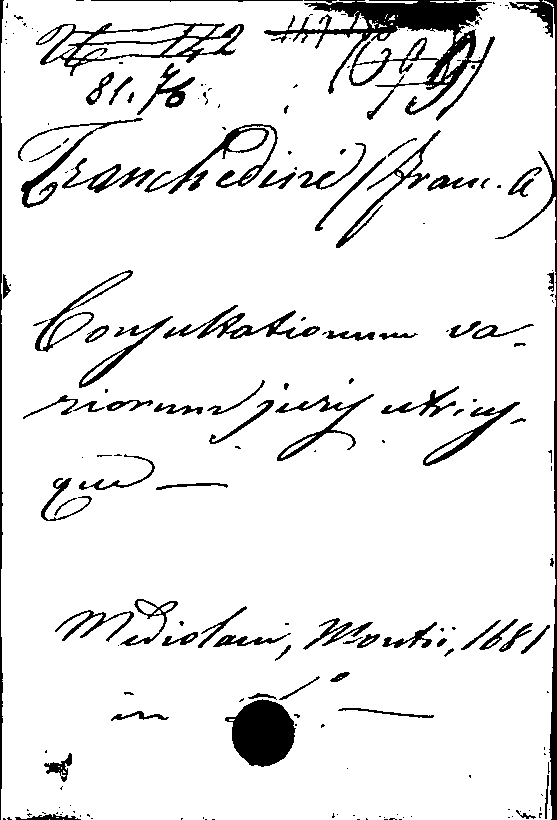 142
81.76
Tranchedini (Franc. A)
Consultationum va-
riorum juris utrius-
que —
Mediolani, Montii, 1681
in f.º —